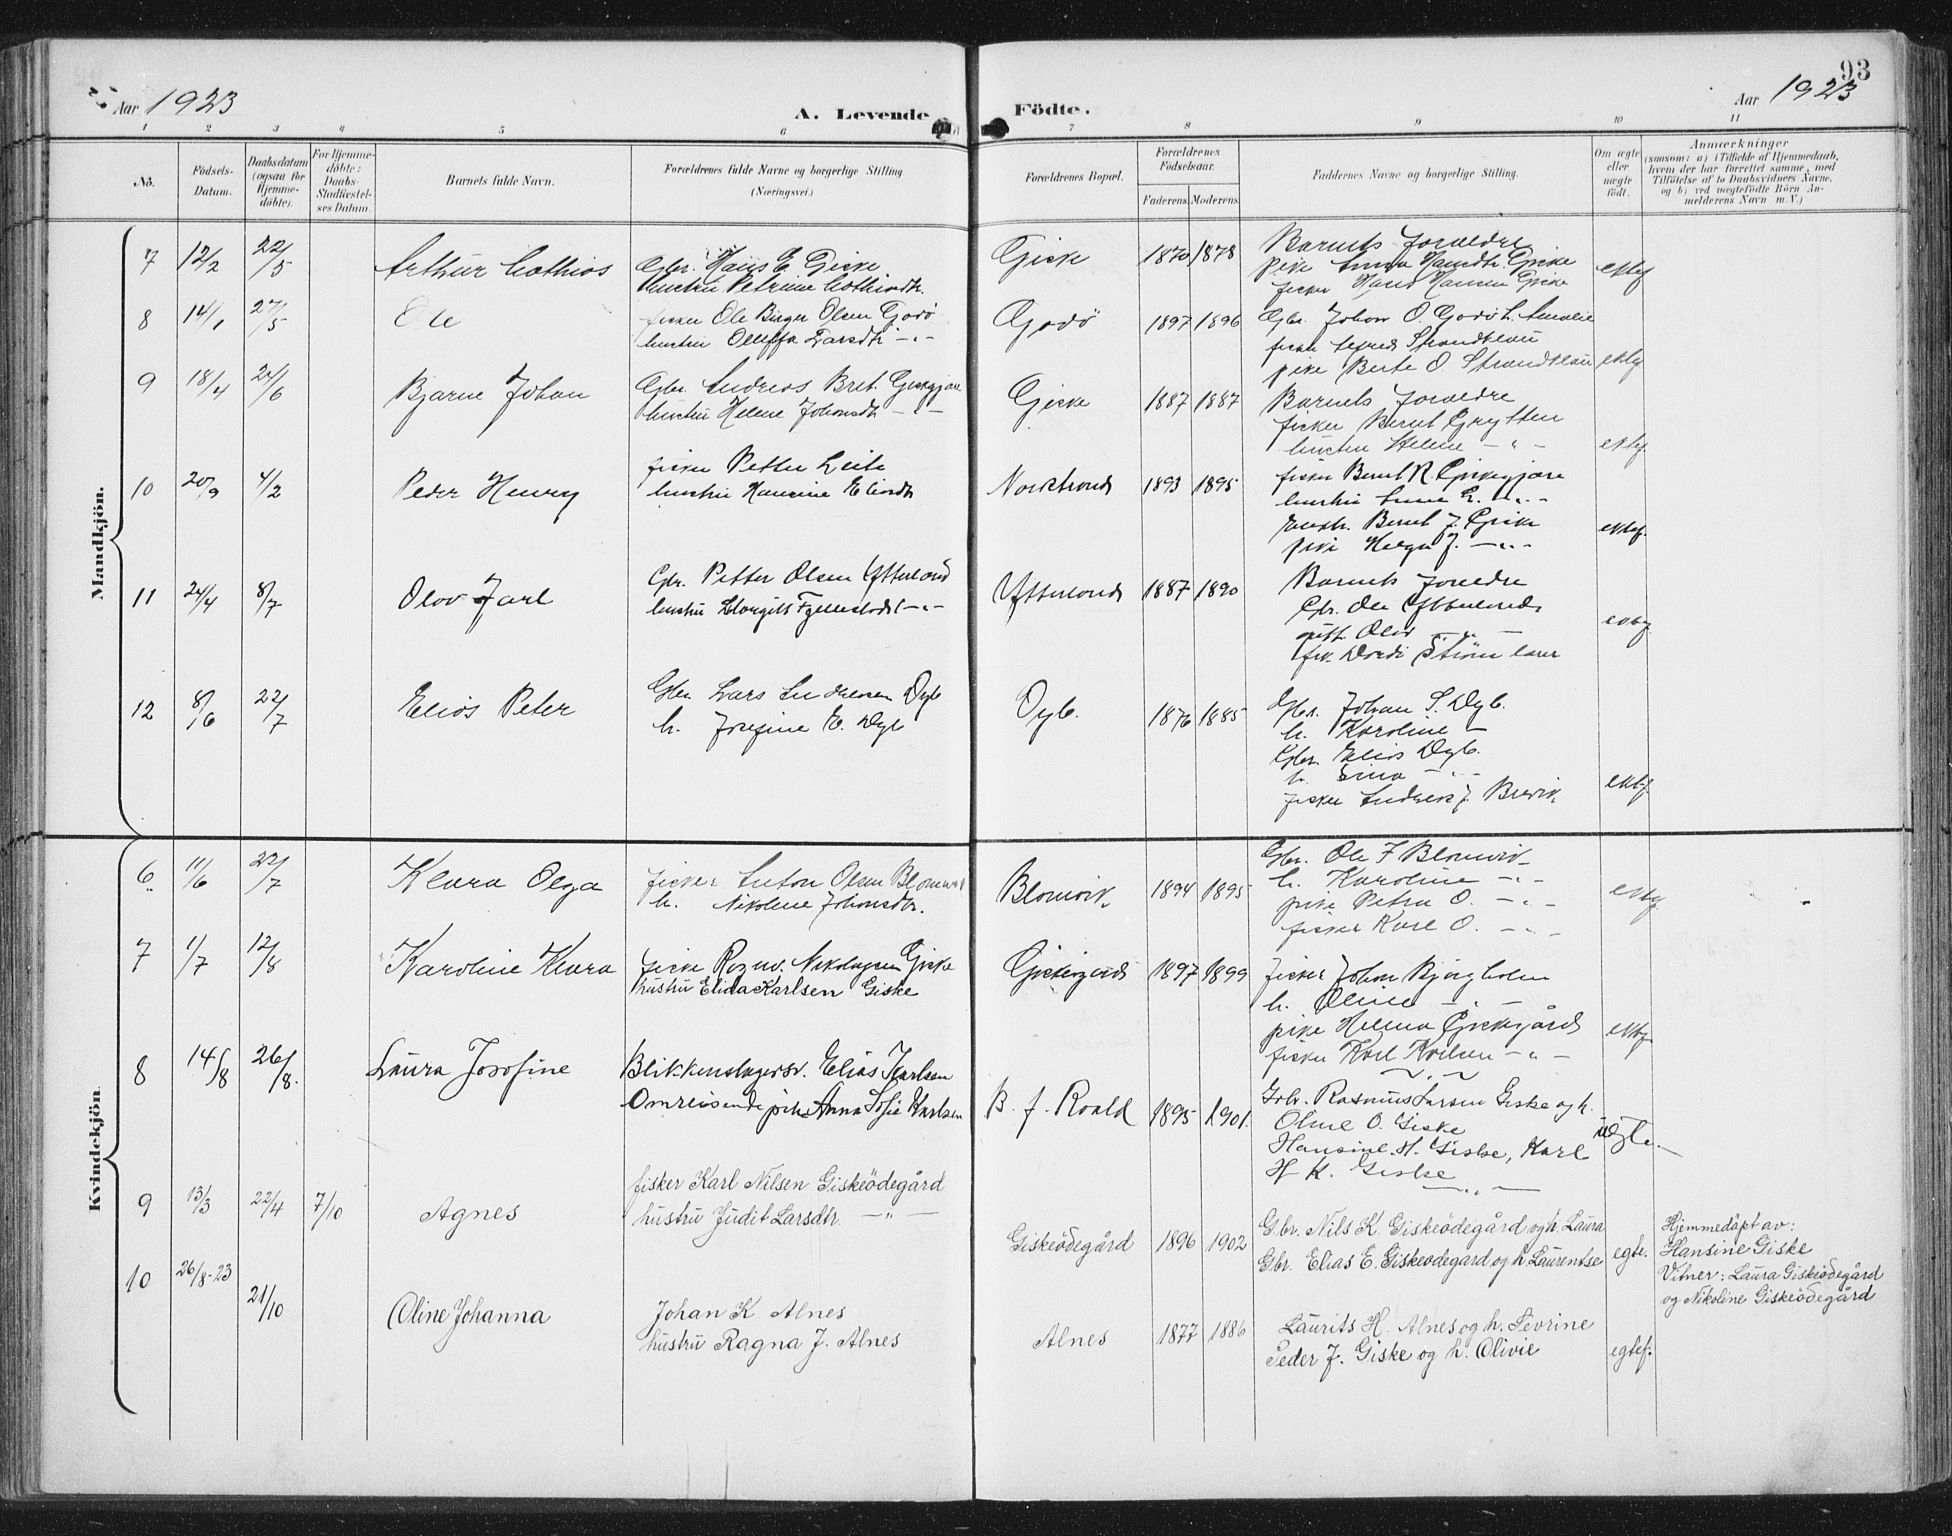 93
Aar 1923
A. Levende Födte.
Aar 1923
1 2 3 4 5 6 7 8 9 10 11
No.
Födsels-Datum.
Daabsdatum (ogsaa for Hjemme-döbte).
For Hjemme-döbte: Daabs-Stadfæstel-ses Datum.
Barnets fulde Navn.
Forældrenes fulde Navne og borgerlige Stilling
(Næringsvei.)
Forældrenes Bopæl.
Forældrenes Födselsaar.
Faderens. Moderens.
Faddernes Navne og borgerlige Stilling.
Om ægte eller uægte födt.
Anmærkninger
(saasom: a) i Tilfælde af Hjemmedaab,
hvem der har forrettet samme, med
Tilföielse af to Daabsvidners Navne.
og b) ved uægtefödte Börn An-
melderens Navn m. V.)
Mandkjön.
7 12/2 22/5 Arthur Mathias
Gbr. Hans E. Giske
hustru Petrine
Giske 1870 1878
Barnets foreldre
pike Anna Hansdtr. Giske
fisker Hans Hansen Giske
ektef
8 14/1 27/5 Ole
fisker Ole Birger Olsen Godö
hustru Larsdtr —"—
Godö 1897 1896
Gbr. Johan O. Godö h. Amalie
fisker Alfred Strandkleiv
pike Berte O. Strandkleiv
ektef
9 18/4 24/6 Bjarne Johan
Gbr. Andreas Bret. Giskegjære
hustru Helene Johansdtr —"—
Giske 1887 1887
Barnets foreldre
fisker Bernt Grytten
hustru Helene —"—
ektef
10 20/9 4/2 Peder Henry
fisker Petter Leite
hustru Hansine Eliasdtr
Norstrand 1893 1895
fisker Bernt R. Giskegjære
hustru Anne E. —"—
Bernt J. Giske
pike Helga J. —"—
ektef.
11 24/4 8/7 Olav Jarl
Gbr. Petter Olsen Ytterland
hustru Margit Fjellestadt —"—
Ytterland 1887 1890
Barnets foreldre
Gbr. Ole Ytterland
Olav —"—
frk. Dordi Ström lærer
ektef.
12 8/6 22/7 Elias Peter
Gbr. Lars Andersen Dyb
h. Josefine E. Dyb
Dyb. 1876 1885
Gbr. Johan S. Dyb.
h. Karoline —
Gbr. Elias Dyb.
h. Sina —"—
fisker Andreas J. Brevik
ektef.
Kvindekjön.
6 11/6 22/7 Klara Olga
fisker Anton Olsen Blomvik
h. Nikoline Johansdtr.
Blomvik 1894 1895
Gbr. Ole F Blomvik
h. Karoline —"—
pike Petra O. —"—
fisker Kare O. —"—
ektef.
7 1/7 12/8 Karoline Klara
fisker Rognv. Nikolaysen Giske
hustru Elida Karlsen Giske
Giskegård 1897 1899
fisker Johan Bjørgholm
h. Oline —"—
pike Helma Giskegård
fisker Karl Karlsen —"—
ektef
8 14/8 26/8. Laura Josofine
Blikkenslagersv. Elias Karlsen
Omreisende pike Anna Sofie Karlsen
B. f. Roald 1895 1901.
Gbr. Rasmus Larsen Giske og h.
Oline O. Giske
Hansine H. Giske, Karl
H K. Giske
—"—
uegte.
9 13/3 22/4 7/10 Agnes
fisker Karl Nilsen Giskeödegård
hustru Judit Larsdtr. —"—
Giskeödegård 1896 1902
Gbr. Nils K. Giskeödegård og h. Laura
Gbr. Elias E. Giskeödegard og h Laurentse
egte.
Hjemmedöpt av:
Hansine Giske
Vitner: Laura Giskeödegård
og Nikoline Giskeödegård
10 26/8-23 21/10 Oline Johanna
Johan K. Alnes
hustru Ragna J. Alnes
Alnes 1877 1886
Laurits H. Alnes og h. Sevrine
Peder J. Giske og h. Olivie
egtef.